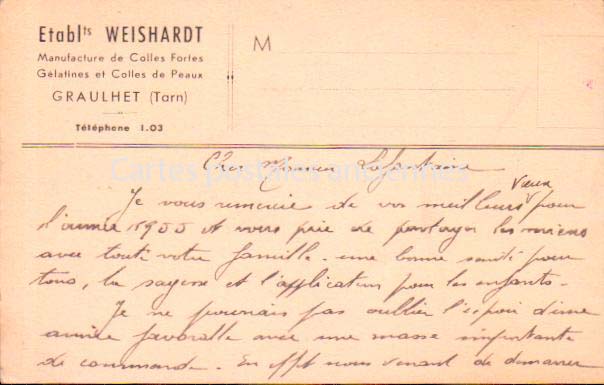 Etablts WEISHARDT
Manufacture de Colles Fortes
Gélatines et Colles de Peaux
GRAULHET (Tarn)
Téléphone 1.03
M
Cartes postales anciennes
Cher Monsieur Lafontaine
Je vous remercie de vos meilleurs vœux pour
l'année 1955 et vous prie de partager les miens
avec toute votre famille. une bonne santé pour
tous, la sagesse et l'application pour les enfants.
Je ne pourrais pas oublier l'espoir d'une
année favorable avec une masse importante
de commande. En effet nous venant de demarrer